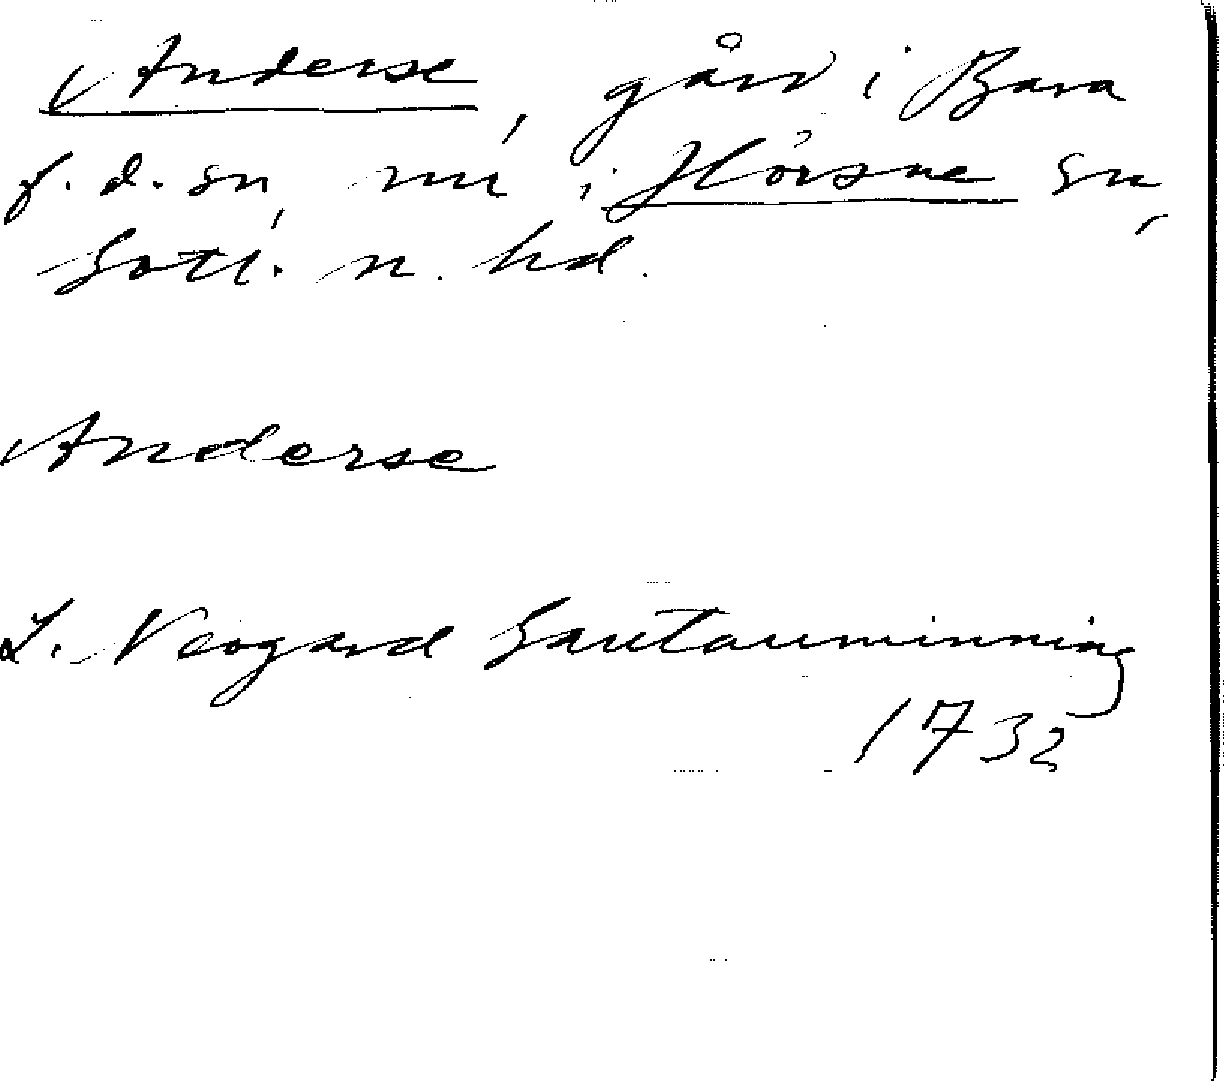 Anderse, gård i Bara
f.d. sn, nu i Hörsne sn,
Gotl. n. hd.
Anderse
L. Neogard Gautauminning
1732